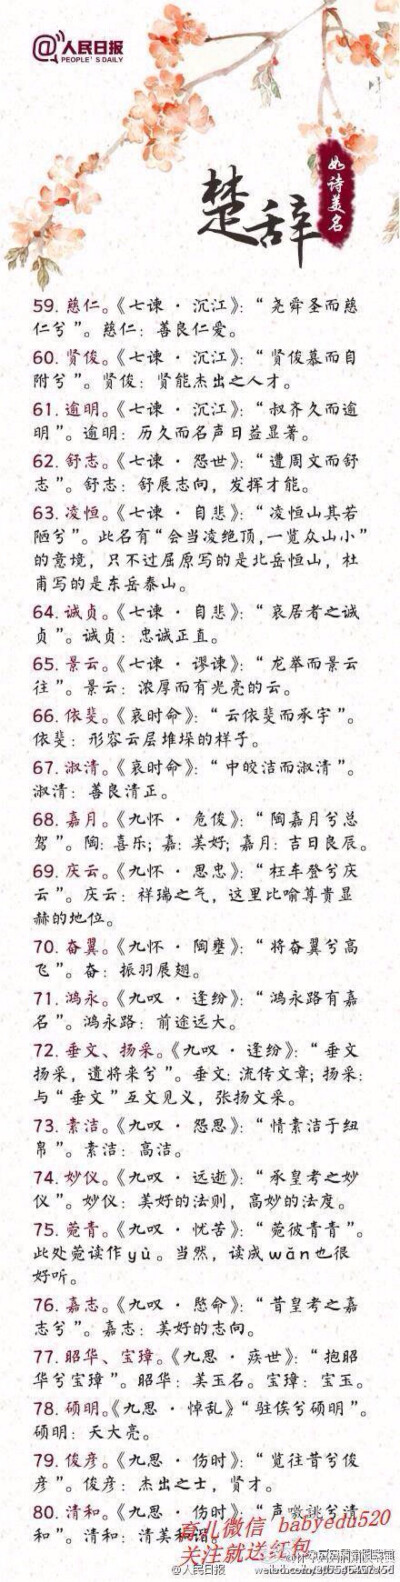 @人民日报
PEOPLE'S DAILY
楚辞
如诗美名
59. 慈仁。《七谏·沉江》：“尧舜圣而慈
仁兮”。慈仁：善良仁爱。
60. 贤俊。《七谏·沉江》：“贤俊慕而自
附兮”。贤俊：贤能杰出之人才。
61. 逾明。《七谏·沉江》：“叔齐久而逾
明”。逾明：历久而名声日益显著。
62. 舒志。《七谏·怨世》：“遭周文而舒
志”。舒志：舒展志向，发挥才能。
63. 凌恒。《七谏·自悲》：“凌恒山其若
陋兮”。此名有“会当凌绝顶，一览众山小”
的意境，只不过屈原写的是北岳恒山，杜
甫写的是东岳泰山。
64. 诚贞。《七谏·自悲》：“哀居者之诚
贞”。诚贞：忠诚正直。
65. 景云。《七谏·谬谏》：“龙举而景云
往”。景云：浓厚而有光亮的云。
66. 依斐。《哀时命》：“云依斐而承宇”。
依斐：形容云层堆垛的样子。
67. 淑清。《哀时命》：“中皎洁而淑清”。
淑清：善良清正。
68. 嘉月。《九怀·危俊》：“陶嘉月兮总
驾”。陶：喜乐；嘉：美好；嘉月：吉日良辰。
69. 庆云。《九怀·思忠》：“枉车登兮庆
云”。庆云：祥瑞之气，这里比喻尊贵显
赫的地位。
70. 奋翼。《九怀·陶壅》：“将奋翼兮高
飞”。奋：振羽展翅。
71. 鸿永。《九叹·逢纷》：“鸿永路有嘉
名”。鸿永路：前途远大。
72. 垂文、扬采。《九叹·逢纷》：“垂文
扬采，遗将来兮”。垂文：流传文章；扬采：
与“垂文”互文见义，张扬文采。
73. 素洁。《九叹·怨思》：“情素洁于纽
帛”。素洁：高洁。
74. 妙仪。《九叹·远逝》：“承皇考之妙
仪”。妙仪：美好的法则，高妙的法度。
75. 菀青。《九叹·忧苦》：“菀彼青青”。
此处菀读作yù。当然，读成wǎn也很
好听。
76. 嘉志。《九叹·愍命》：“昔皇考之嘉
志兮”。嘉志：美好的志向。
77. 昭华、宝璋。《九思·疾世》：“抱昭
华兮宝璋”。昭华：美玉名。宝璋：宝玉。
78. 硕明。《九思·悼乱》“驻俟兮硕明”。
硕明：天大亮。
79. 俊彦。《九思·伤时》：“览往昔兮俊
彦”。俊彦：杰出之士，贤才。
80. 清和。《九思·伤时》：“声噭誂兮清
和”。清和：清美和谐。
育儿微信 babyedu520
关注就送红包
@人民日报